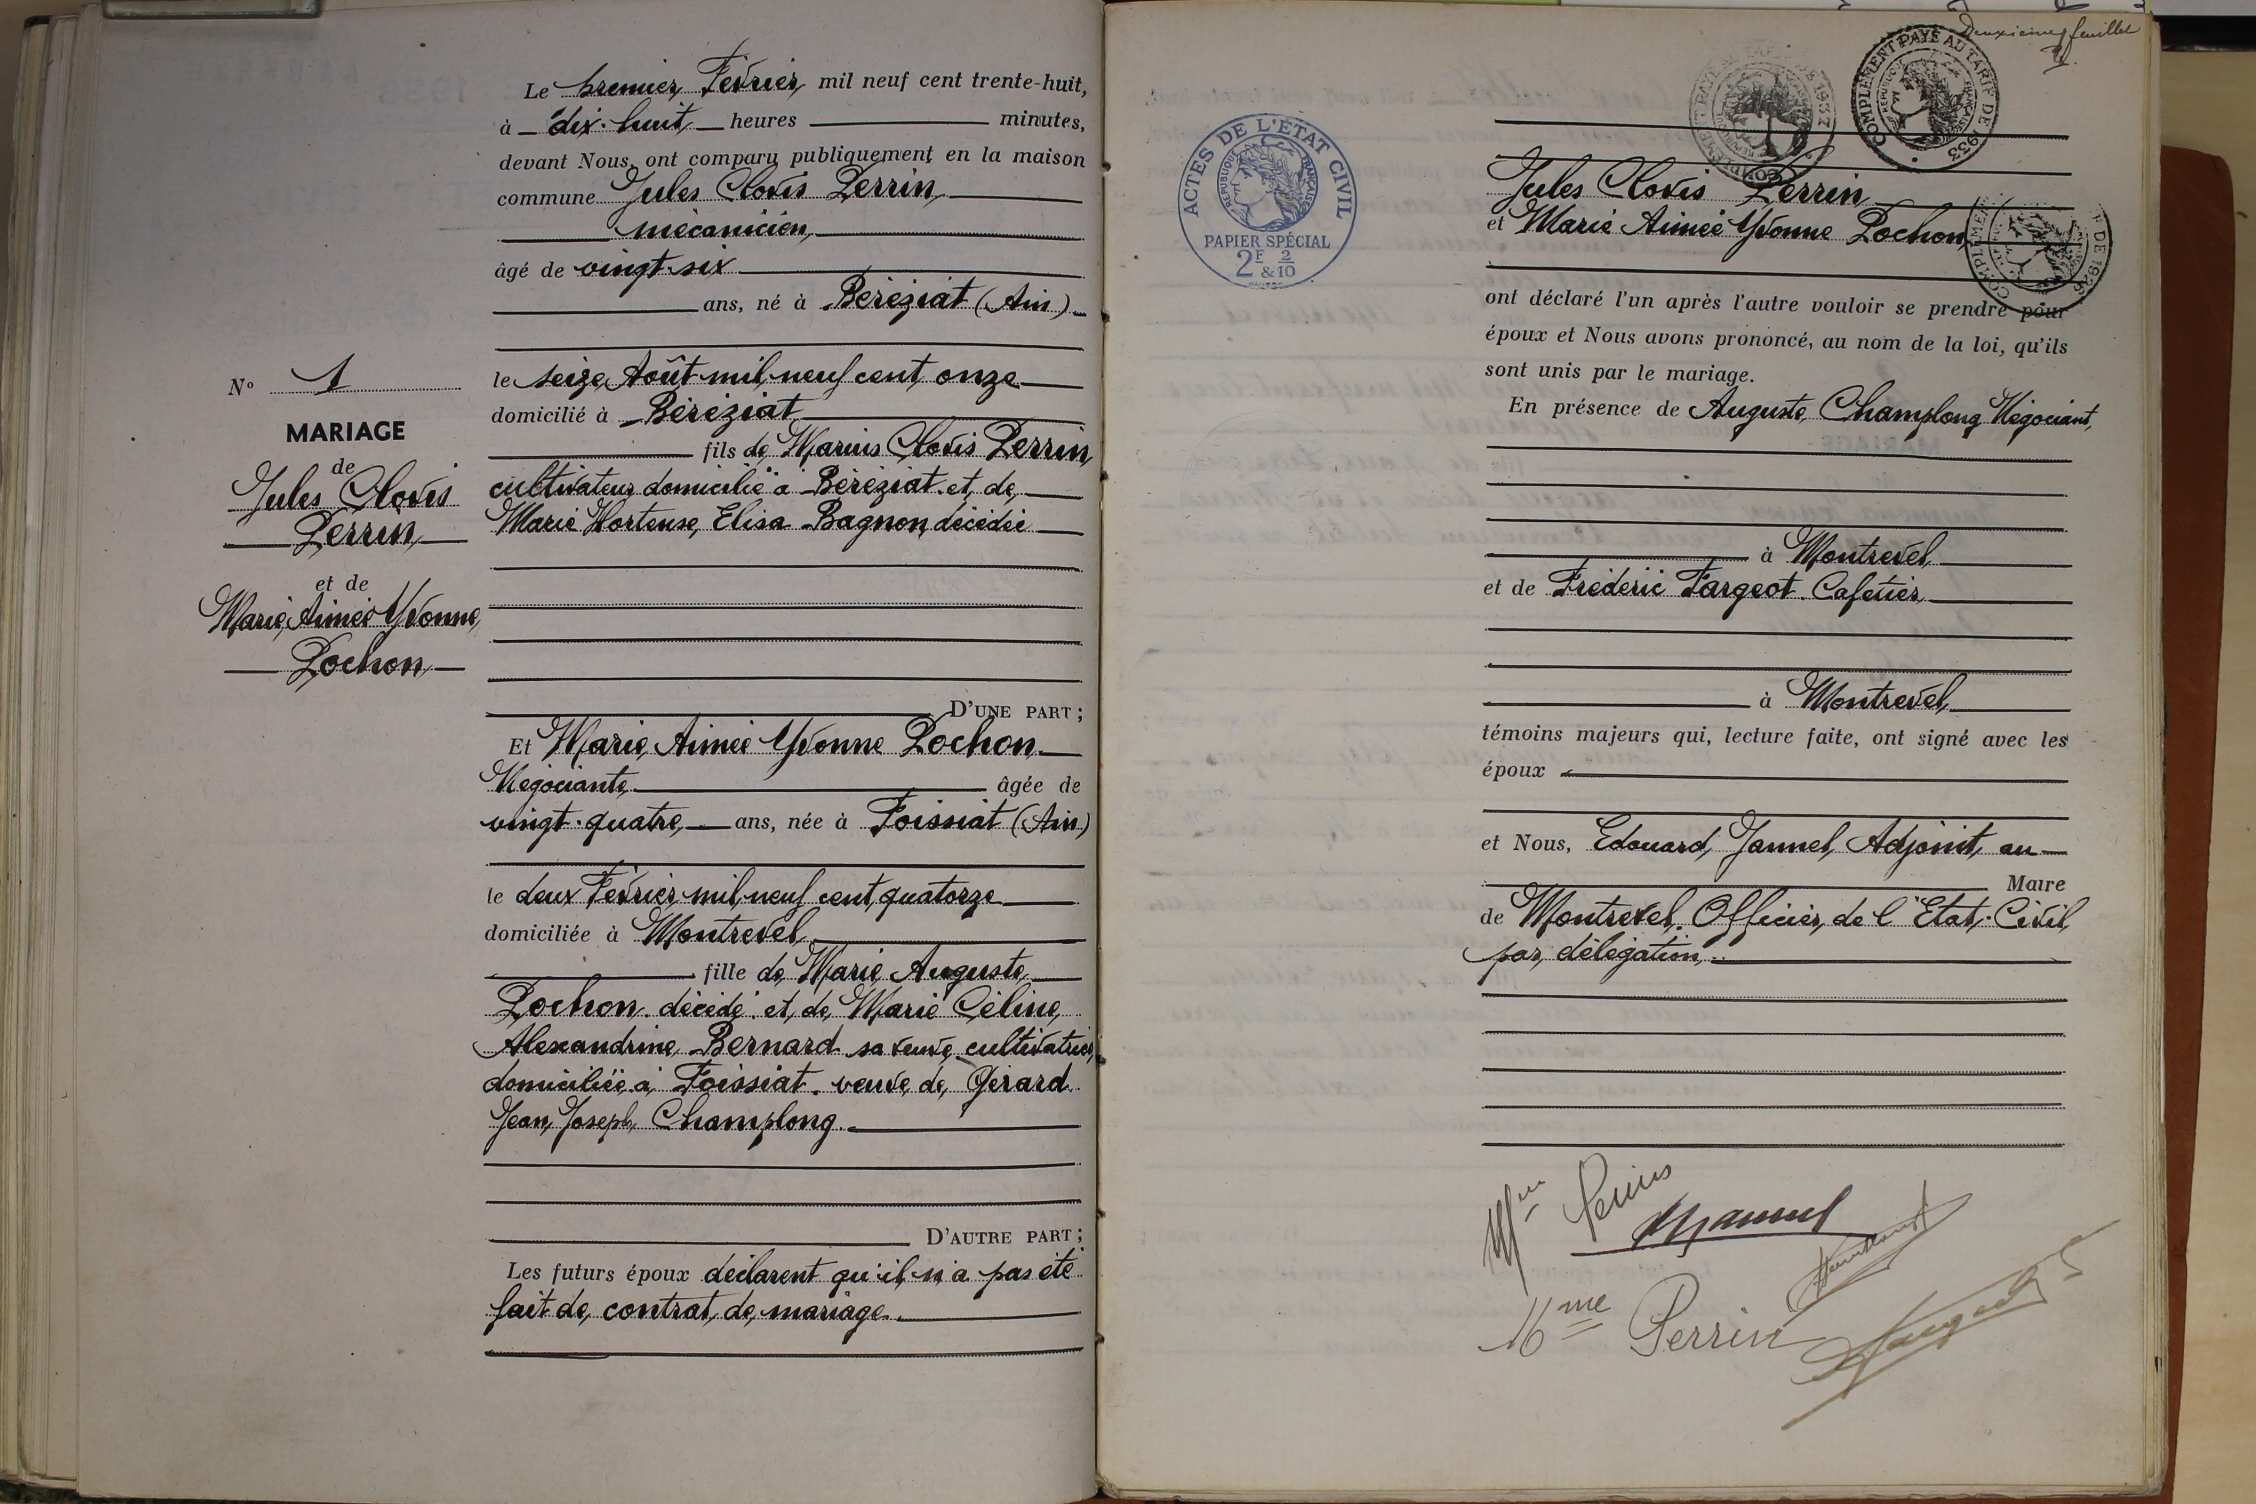 Le premier Février mil neuf cent trente-huit,
à dix-huit heures minutes,
devant Nous ont comparu publiquement en la maison
commune Jules Clovis Perrin,
mécanicien,
âgé de vingt-six
ans, né à Béréziat (Ain)
le seize Août mil neuf cent onze
domicilié à Béréziat
fils de Marius Clovis Perrin,
cultivateur domicilié à Béréziat et de
Marie Hortense Elisa Bagnon, décédée
D'UNE PART;
Et Marie Aimée Yvonne Pochon
Négociante âgée de
vingt-quatre ans, née à Foissiat (Ain)
le deux Février mil neuf cent quatorze
domiciliée à Montrevel
fille de Marie Auguste
Pochon décédé et de Marie Céline
Alexandrine Bernard sa veuve cultivatrice,
domiciliée à Foissiat. veuve de Gérard
Jean Joseph Champlong.
D'AUTRE PART;
Les futurs époux déclarent qu'il n'a pas été
fait de contrat de mariage.
N° 1
MARIAGE
de
Jules Clovis
Perrin
et de
Marie Aimée Yvonne
Pochon
Deuxième feuillet
ACTES DE L'ÉTAT CIVIL
RÉPUBLIQUE FRANÇAISE
PAPIER SPÉCIAL
2F 2/10
&
COMPLÉMENT PAYÉ AU TARIF DE 1937
COMPLÉMENT PAYÉ AU TARIF DE 1933
RÉPUBLIQUE FRANÇAISE
Jules Clovis Perrin
et Marie Aimée Yvonne Pochon,
COMPLÉMENT DE 1926
ont déclaré l'un après l'autre vouloir se prendre pour
époux et Nous avons prononcé, au nom de la loi, qu'ils
sont unis par le mariage.
En présence de Auguste Champlong Négociant,
à Montrevel
et de Frédéric Fargeot. Cafetier
à Montrevel,
témoins majeurs qui, lecture faite, ont signé avec les
époux
et Nous, Edouard Jannel, Adjoint au
Maire
de Montrevel. Officier de l'Etat-Civil
par délégation.
Mme Perrin